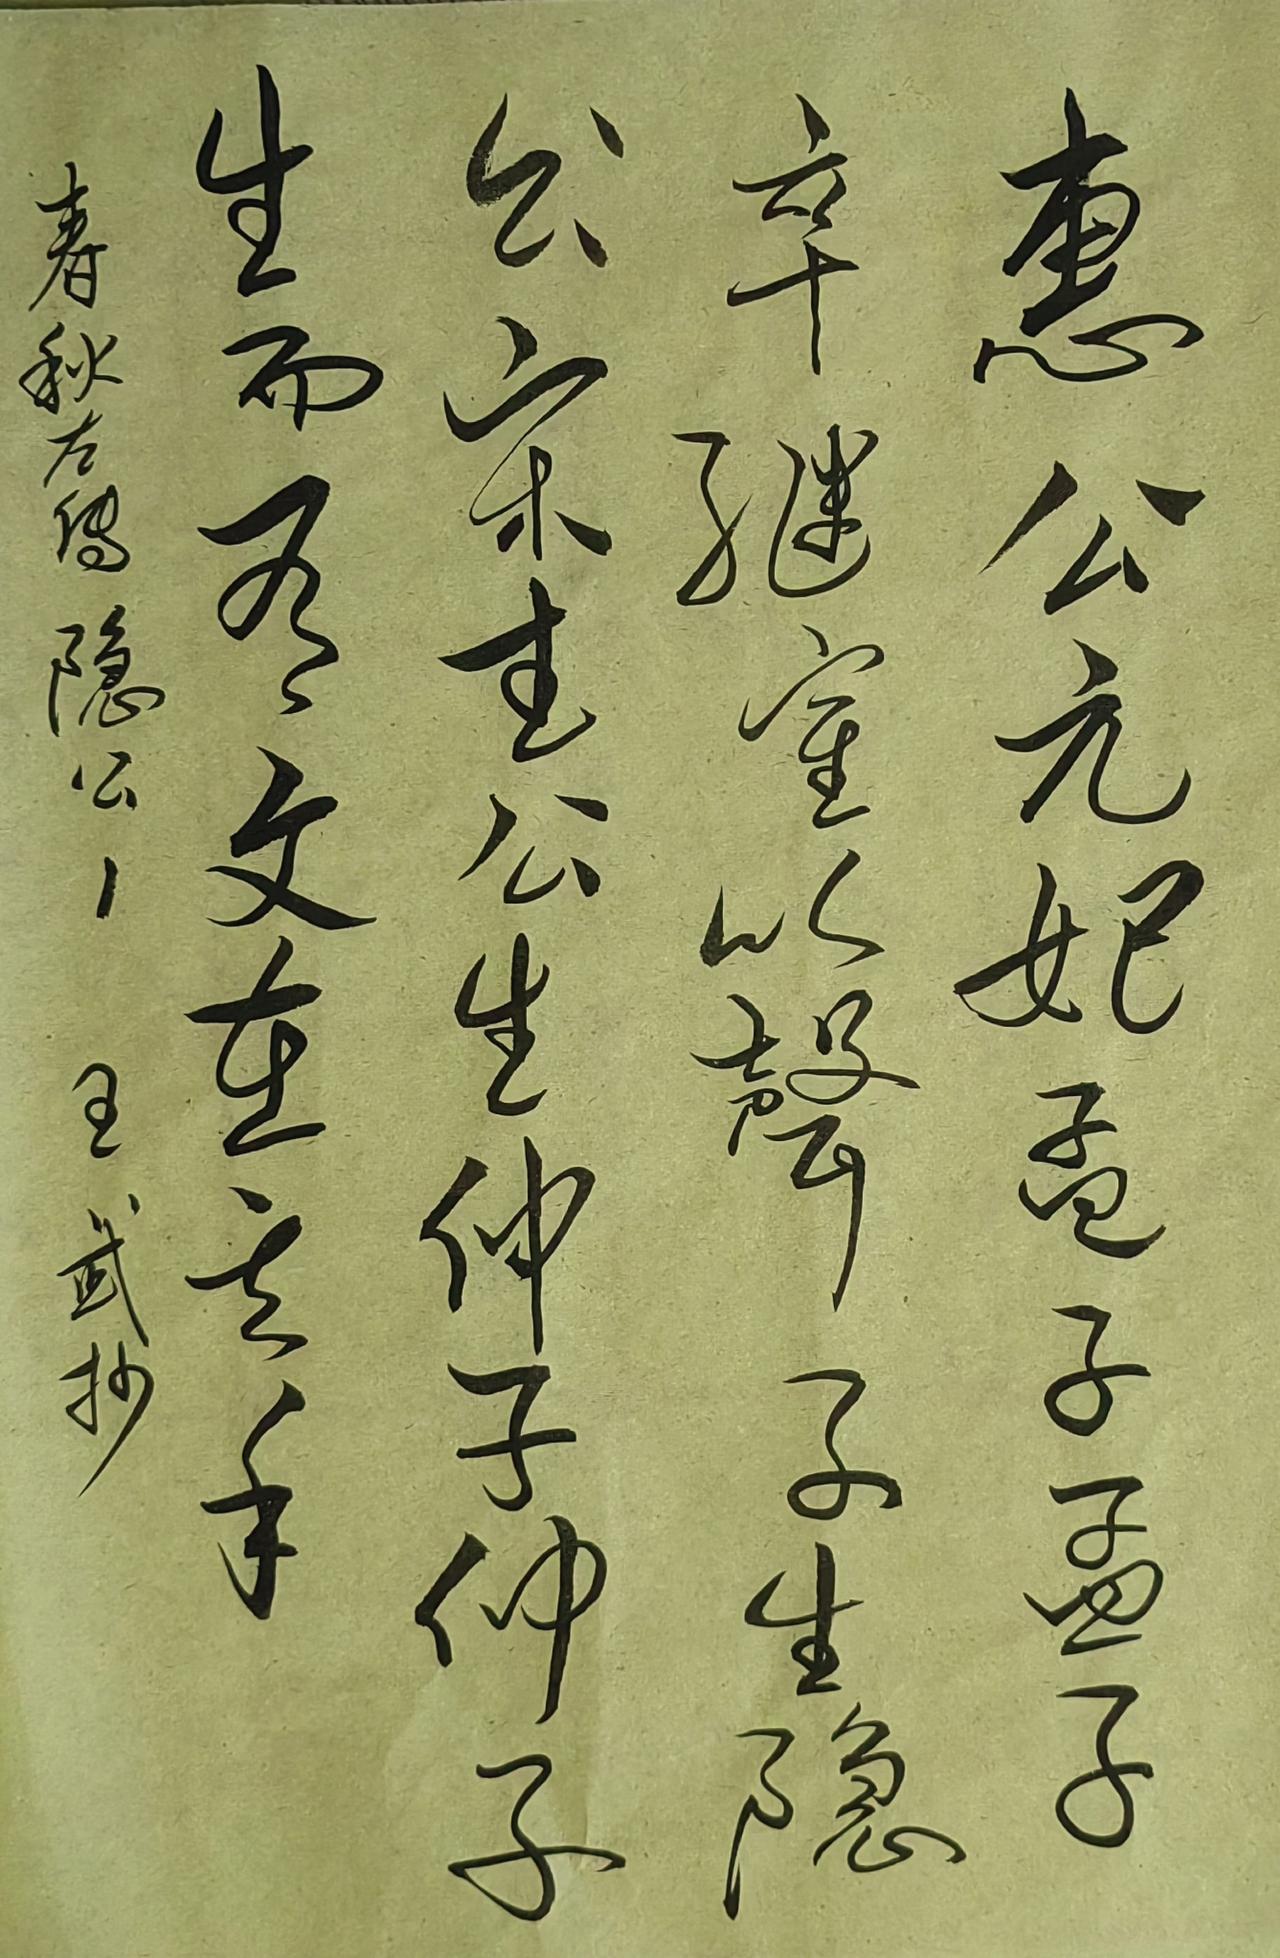 惠公元妃孟子孟子
卒继室以聲子生隐
公宋武公生仲子仲子
生而有文在其手
春秋左傳隐公 王武抄